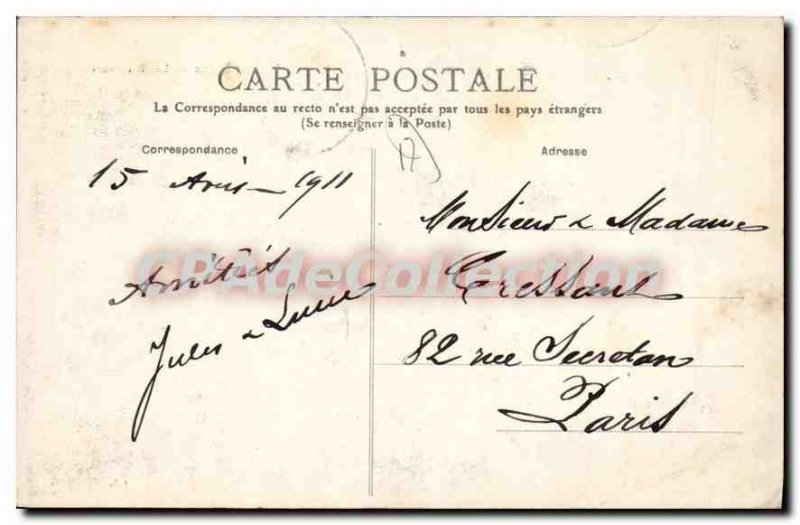 CARTE POSTALE
La Correspondance au recto n'est pas acceptée par tous les pays étrangers
(Se renseigner à la Poste)
Correspondance
15 Avril 1911
Amitiés
Jules &
Adresse
Monsieur & Madame
Cressant
82 rue Secretan
Paris
17
CPAdeCollection